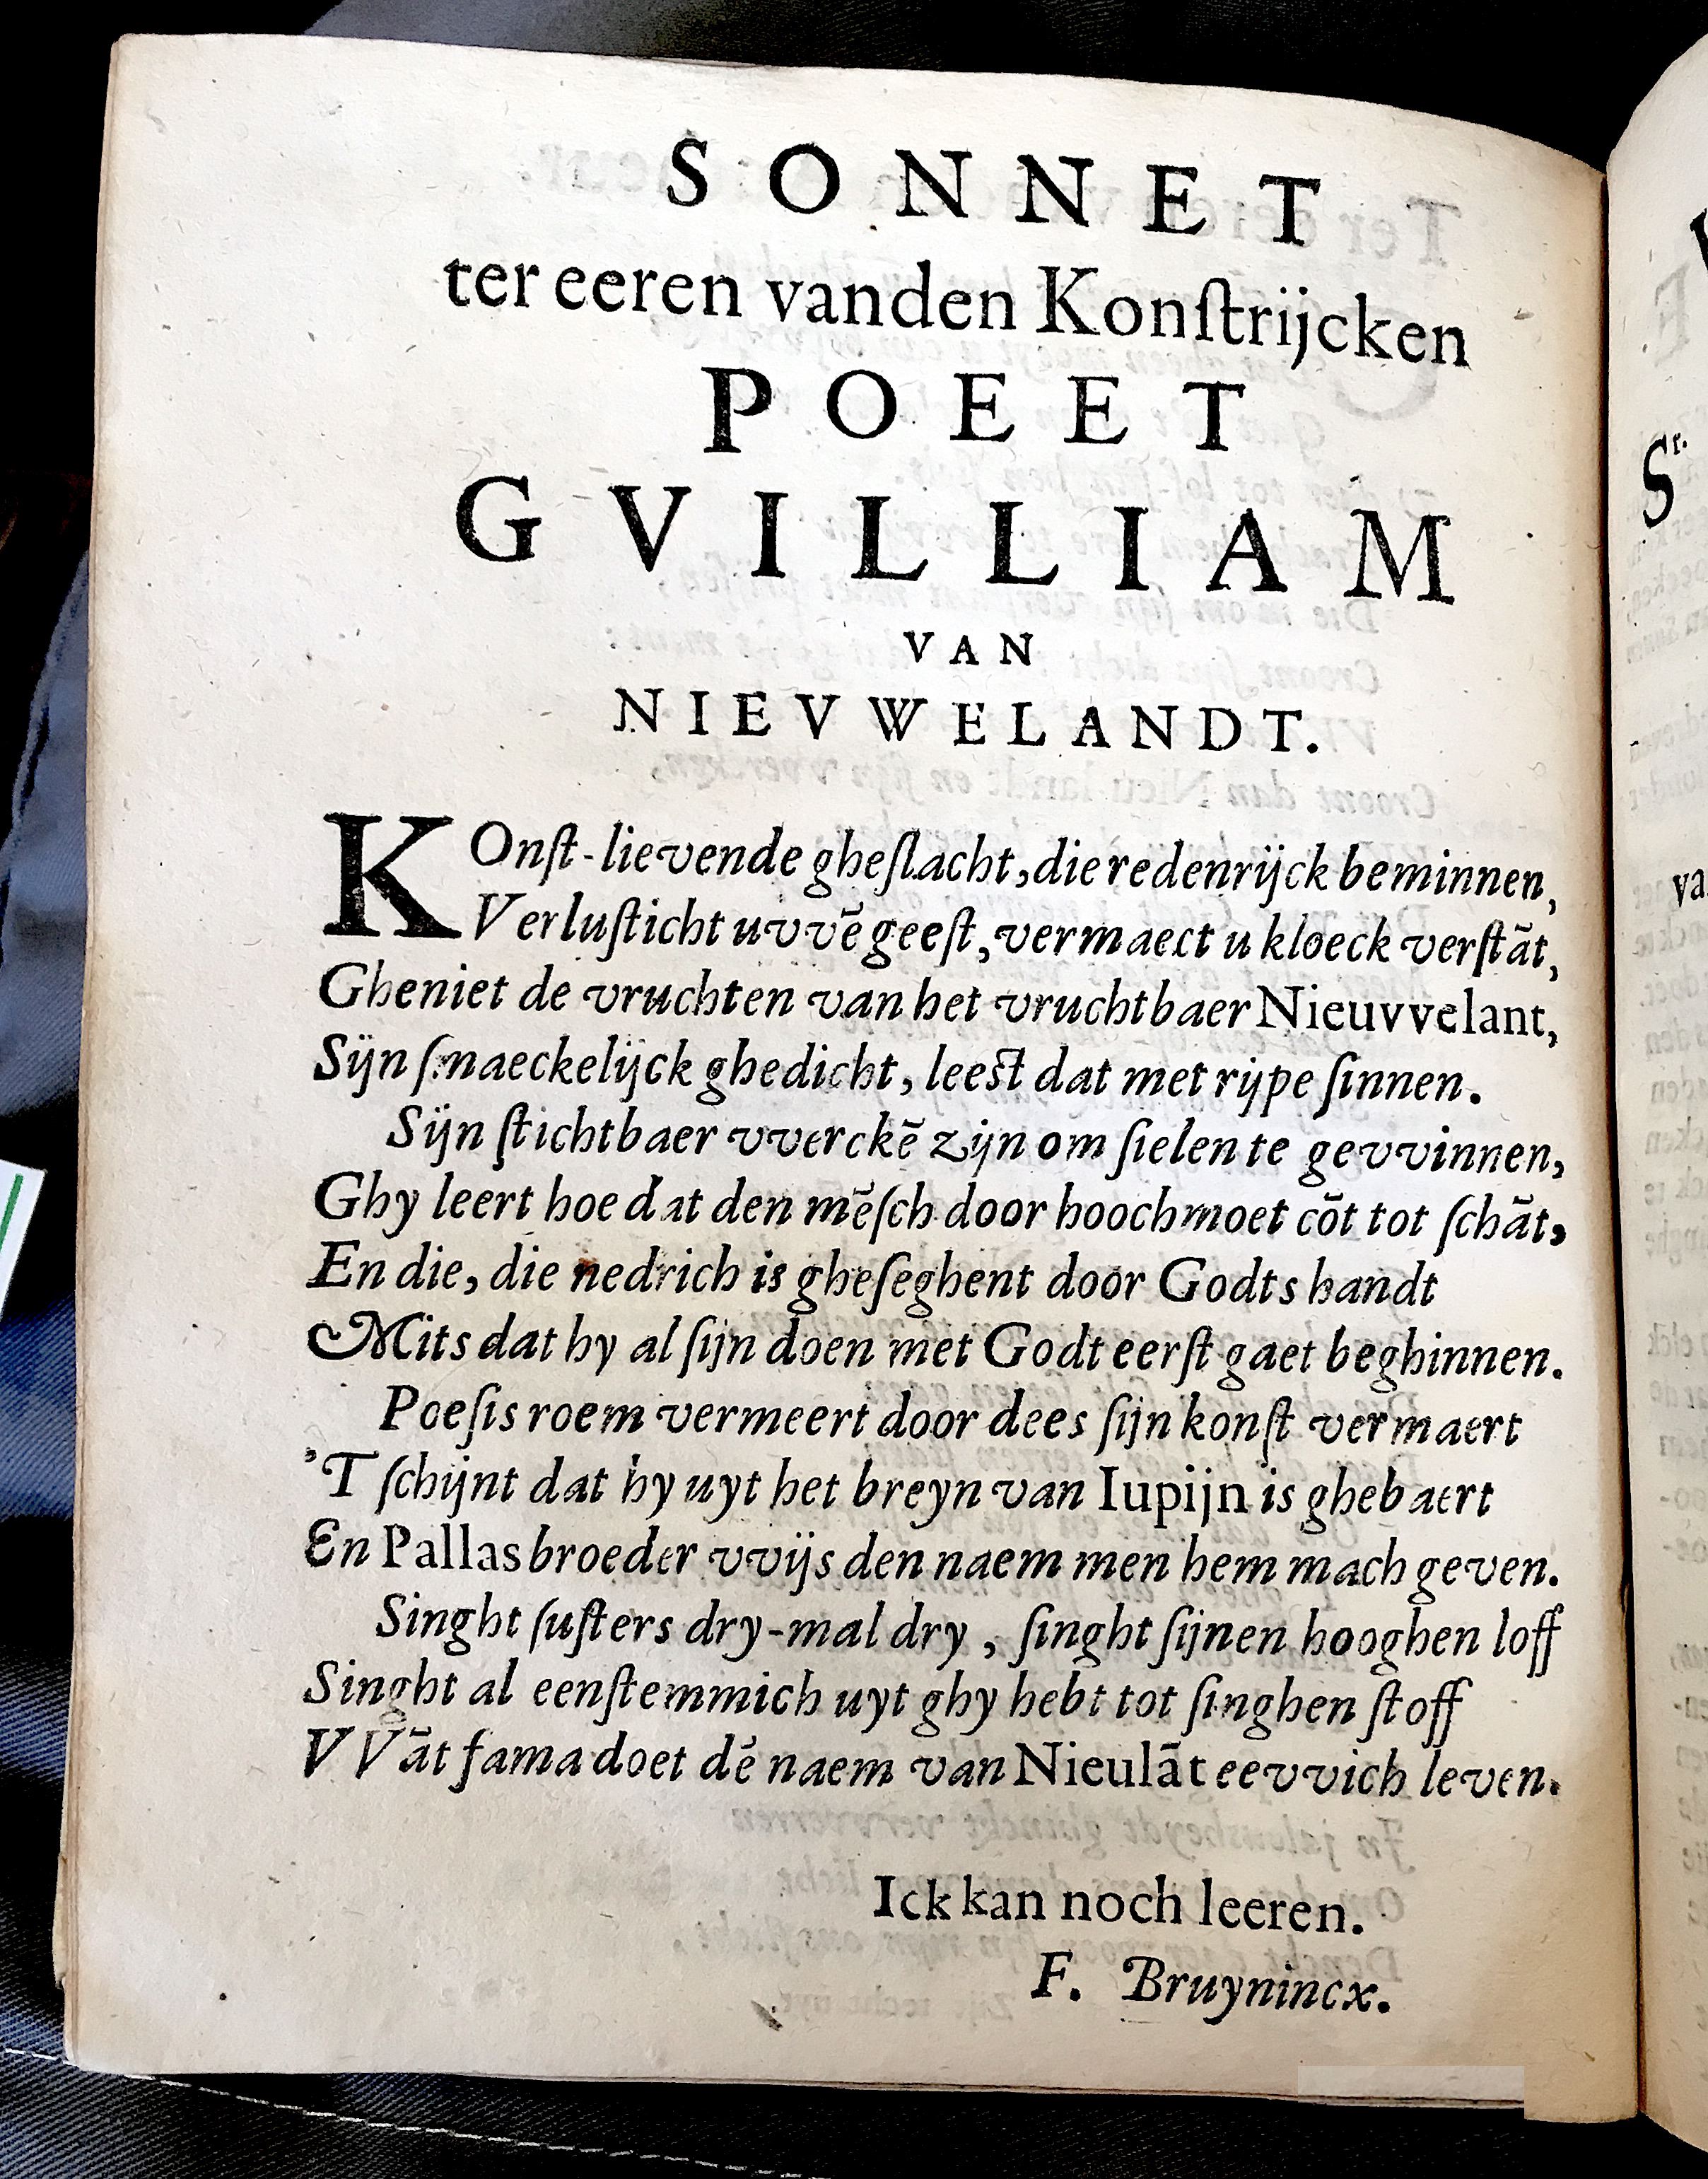 SONNET
ter eeren vanden Konſtrijcken
POEET
GVILLIAM
VAN
NIEVWELANDT.
KOnſt-lievende gheſlacht, die redenrijck beminnen,
Verluſticht uvvē geeſt, vermaect u kloeck verſtāt,
Gheniet de vruchten van het vruchtbaer Nieuvvelant,
Sijn ſmaeckelijck ghedicht, leest dat met rijpe ſinnen.
Sijn ſtichtbaer vverckē zijn om ſielen te gevvinnen,
Ghy leert hoe dat den mēſch door hoochmoet cōt tot ſchāt,
En die, die nedrich is gheſeghent door Godts handt
Mits dat hy al ſijn doen met Godt eerſt gaet beghinnen.
Poeſis roem vermeert door dees ſijn konſt vermaert
'T ſchijnt dat hy uyt het breyn van Iupijn is ghebaert
En Pallas broeder vvijs den naem men hem mach geven.
Singht ſuſters dry-mal dry, ſinght ſijnen hooghen loff
Singht al eenſtemmich uyt ghy hebt tot ſinghen ſtoff
VVāt fama doet dē naem van Nieulāt eevvich leven.
Ick kan noch leeren.
F. Bruynincx.